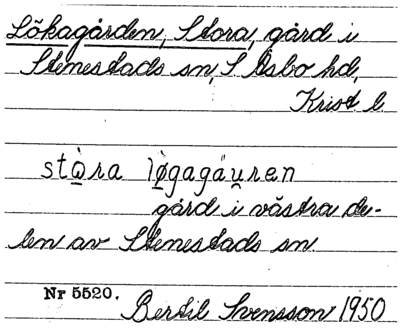 Lökagården, Stora, gård i
Stenestads sn, S Åsbo hd,
Krist l.
stò̱ra lø̱̀gagáu̯ren
gård i västra de-
len av Stenestads sn.
Nr 5520. Bertil Svensson 1950